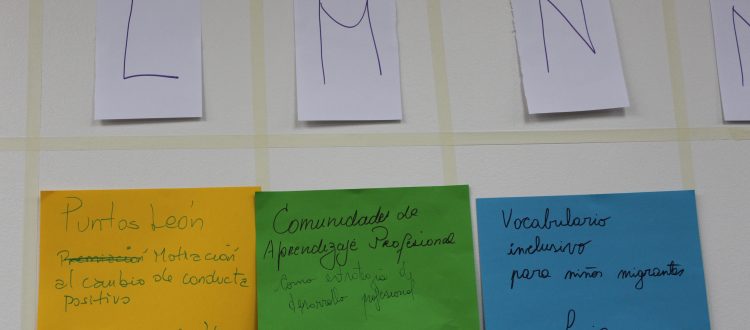 L
M
N
Puntos León
Premiación Motivación
al cambio de conducta
positivo
Comunidades de
Aprendizaje Profesional
Como estrategia de
desarrollo profesional
Vocabulario
inclusivo
para niños migrantes